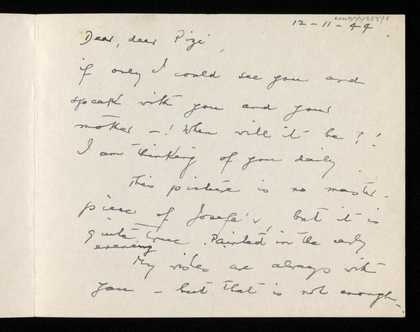 12-11-44
Dear, dear Pizi,
if only I could see you and
speak with you and your
mother – ! When will it be ? !
I am thinking of you daily.
This picture is no master-
piece of Josefa's, but it is
quite true. Painted in the early
evening
My wishes are always with
you – but that is not enough –